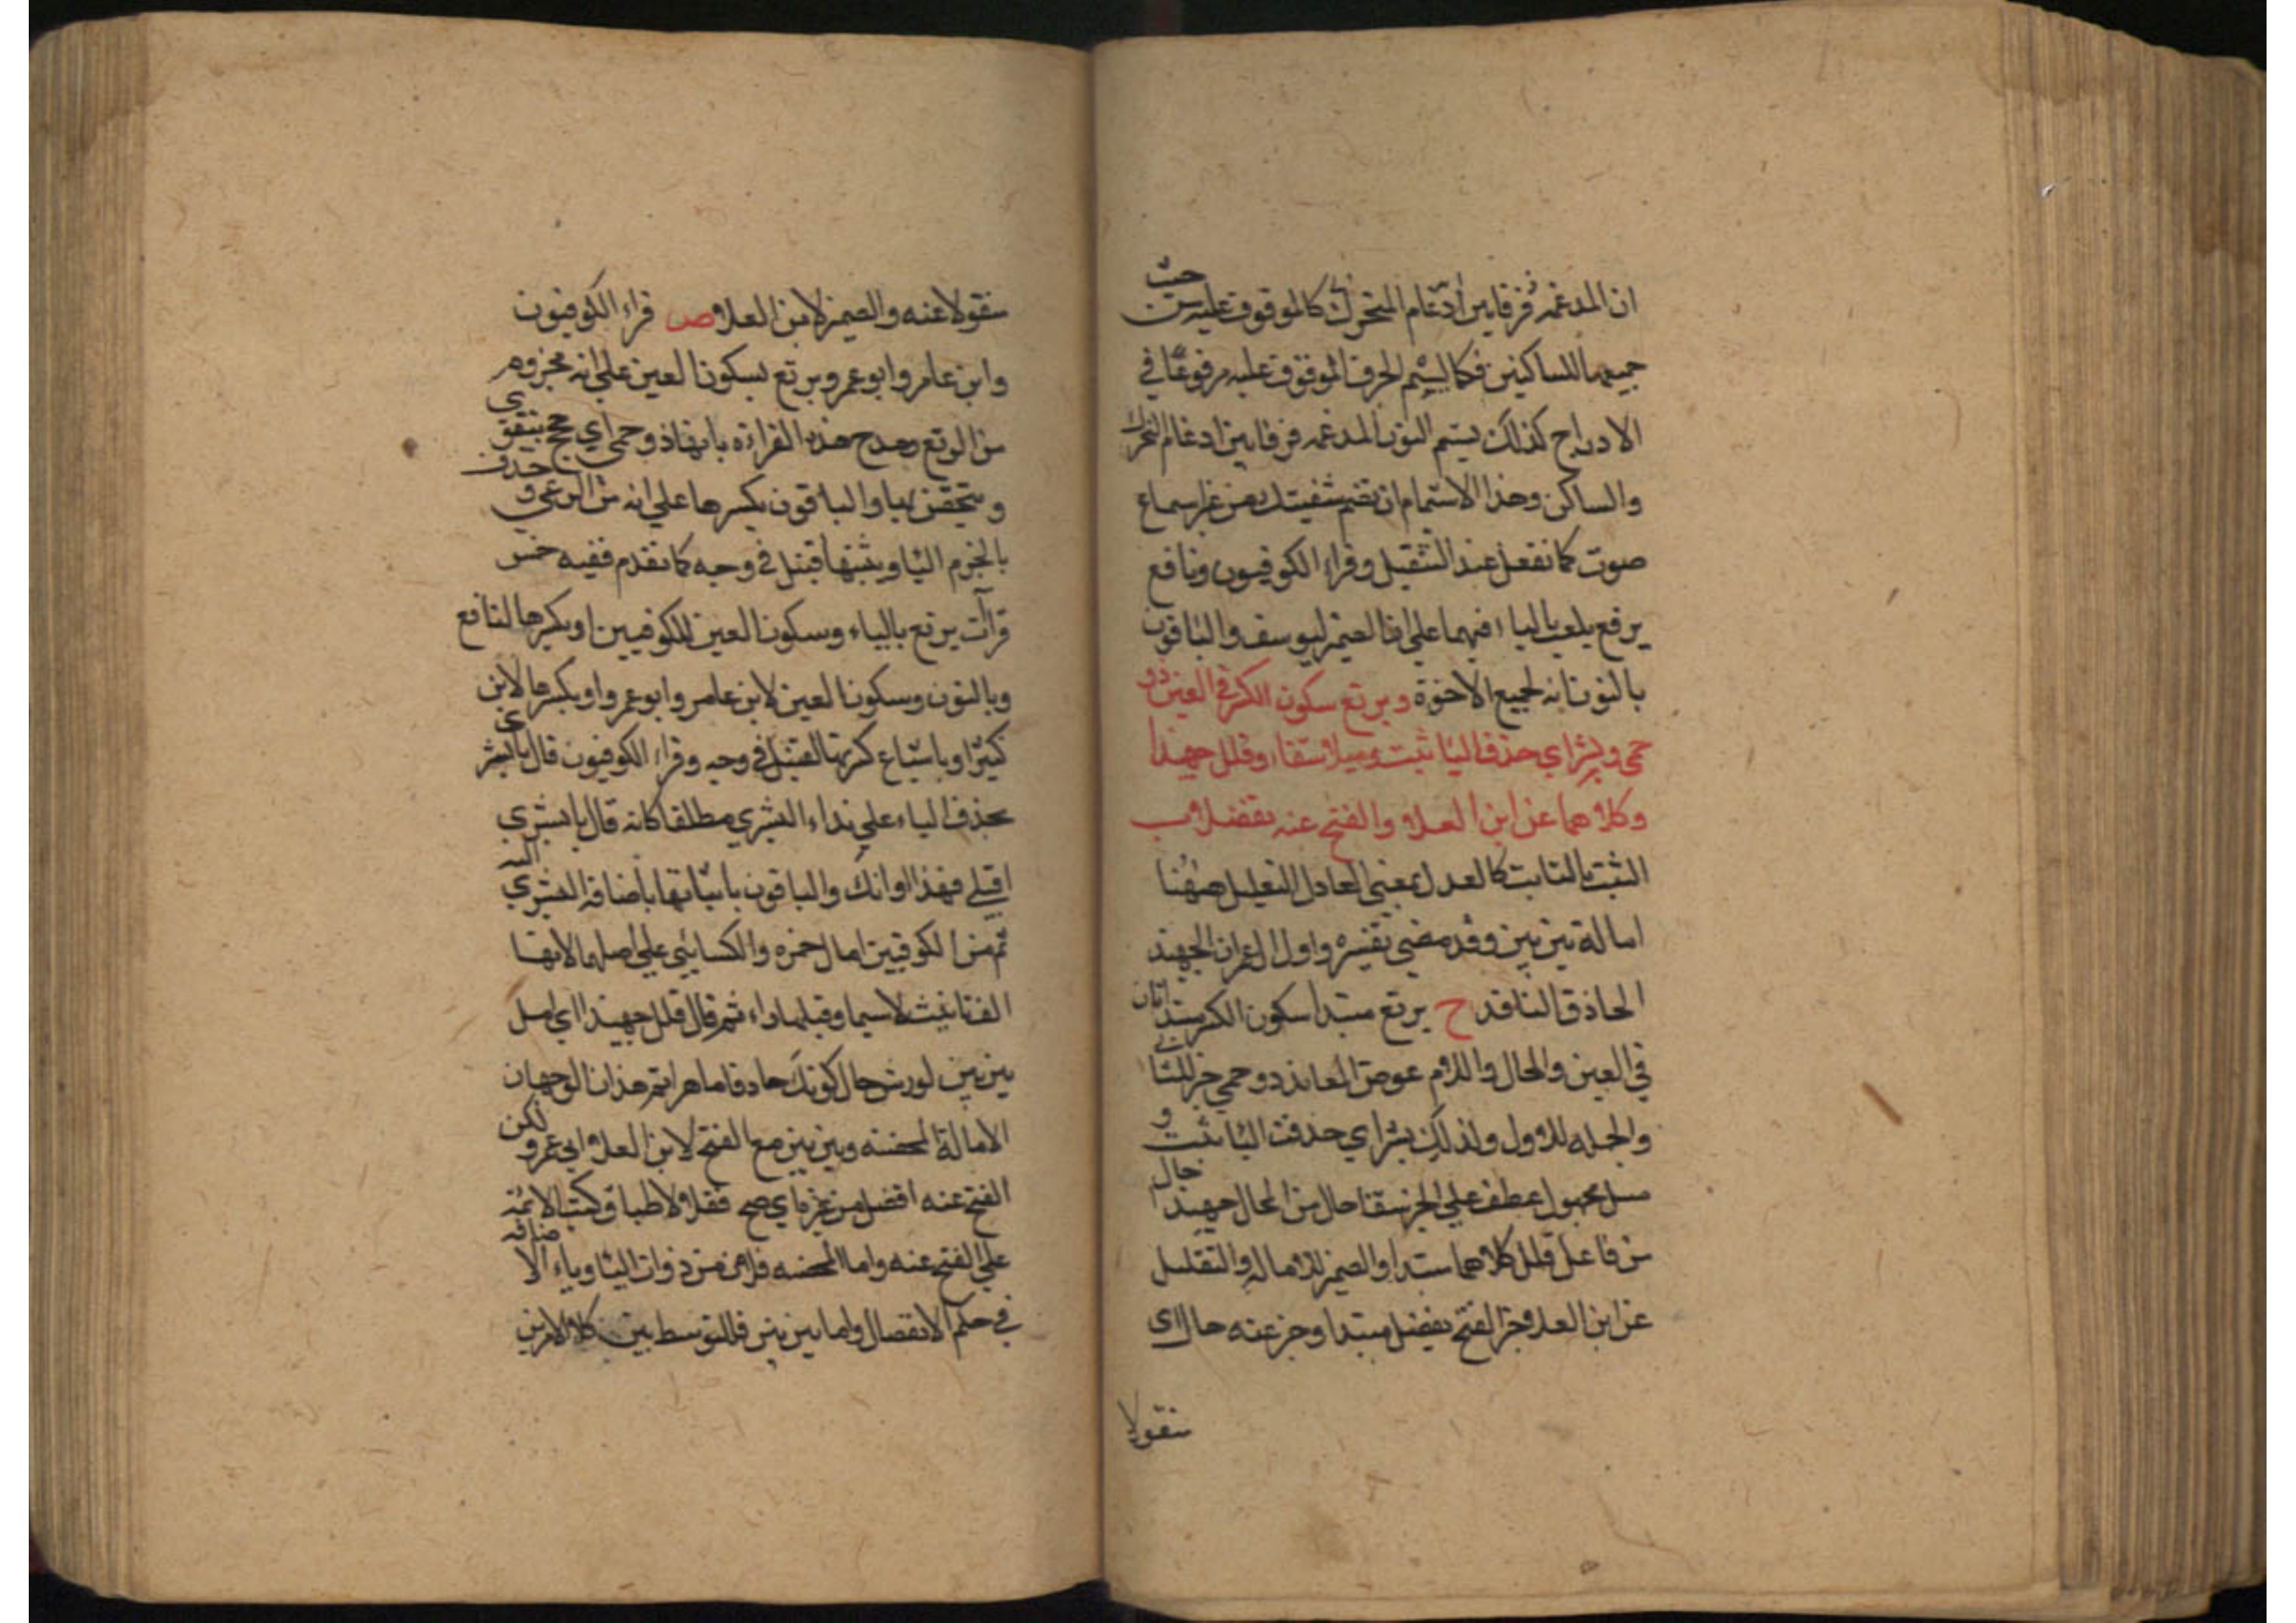 ان المدغمه فرقا بين ادغام المتحرك كالموقوف عليه من حيث
جميعها للساكنين فكما يشم الحرف الموقوف عليه مرفوعا في
الادراج كذلك يشم النون المدغمه فرقا بين ادغام المتحرك
والساكن وهذا الاشمام ان تضم شفيتك من غير سماع
صوت كما تفعل عند التقبيل وقراء الكوفيون ونافع
يرتع يلعب بالياء فيهما على ان الضمير ليوسف والباقون
بالنون انه لجميع الاخوة ويرتع سكون الكسر في العين ذو
حمى وبشراي حذف اليا ثبت وميلا شفاء وقلل جهبذا
وكلاهما عن ابن العلا والفتح عنه تفضلا ب
الثبت الثابت كالعدل بمعنى العادل التقليل ههنا
امالة بين بين وقد مضى تفسيره واول ال عمران الجهبذ
الحاذق الناقد ح يرتع مبتدا سكون الكسر مبتدا ثان
في العين والحال واللام عوض العائد ذو حمى خبر الثاني
والجمله للاول ولذلك بشراي حذف اليا ثبت و
ميل مجهول عطف على الخبر شفا حال من الحال جهبذا حال
من فاعل قلل كلاهما مبتدا والضمير للاماله والتقليل
عن ابن العلا خبر الفتح تفضل مبتدا وخبر عنه حال اي
منقولا
منقولا عنه والضمير لابن العلا ص قراء الكوفيون
وابن عامر وابو عمرو يرتع بسكون العين على انه مجزوم
من الرتع ومدح هذه القراءة بانها ذو حمى اي حجج يتقوى
ويتحقق بها والباقون بكسرها على انه من الرعي وحذف
بالجزم اليا ويثبتها قنبل في وجه كما تقدم ففيه خمس
قراآت يرتع بالياء وسكون العين للكوفيين او بكسرها لنافع
وبالنون وسكون العين لابن عامر وابو عمرو او بكسرها لابن
كثير او باشباع كسرتها لقنبل في وجه وقراء الكوفيون قال يا بشرى
بحذف الياء على نداء البشرى مطلقا كانه قال يا بشرى
اقبلي فهذا اوانك والباقون باثباتها باضافة البشرى اليه
ثم من الكوفيين امال حمزه والكسائي على اصلهما لانها
الف تانيث لاسيما وقبلها راء ثم قال قلل جهبذا اي امل
بين بين لورش حال كونك حاذقا ماهرا ثم هذان الوجهان
الامالة المحضه وبين بين مع الفتح لابن العلا ابي عمرو لكن
الفتح عنه افضل من غيره اي صح نقلا لاطباق كتب الائمة
على الفتح عنه واما المحضه فلانه من ذوات اليا وياء الاضافة
في حكم الانفصال واما بين بين فللتوسط بين كلا الامرين